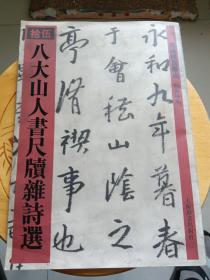 永和九年暮春
于會稽山陰之
亭脩禊事也
拾伍
八大山人書尺牘雜詩選